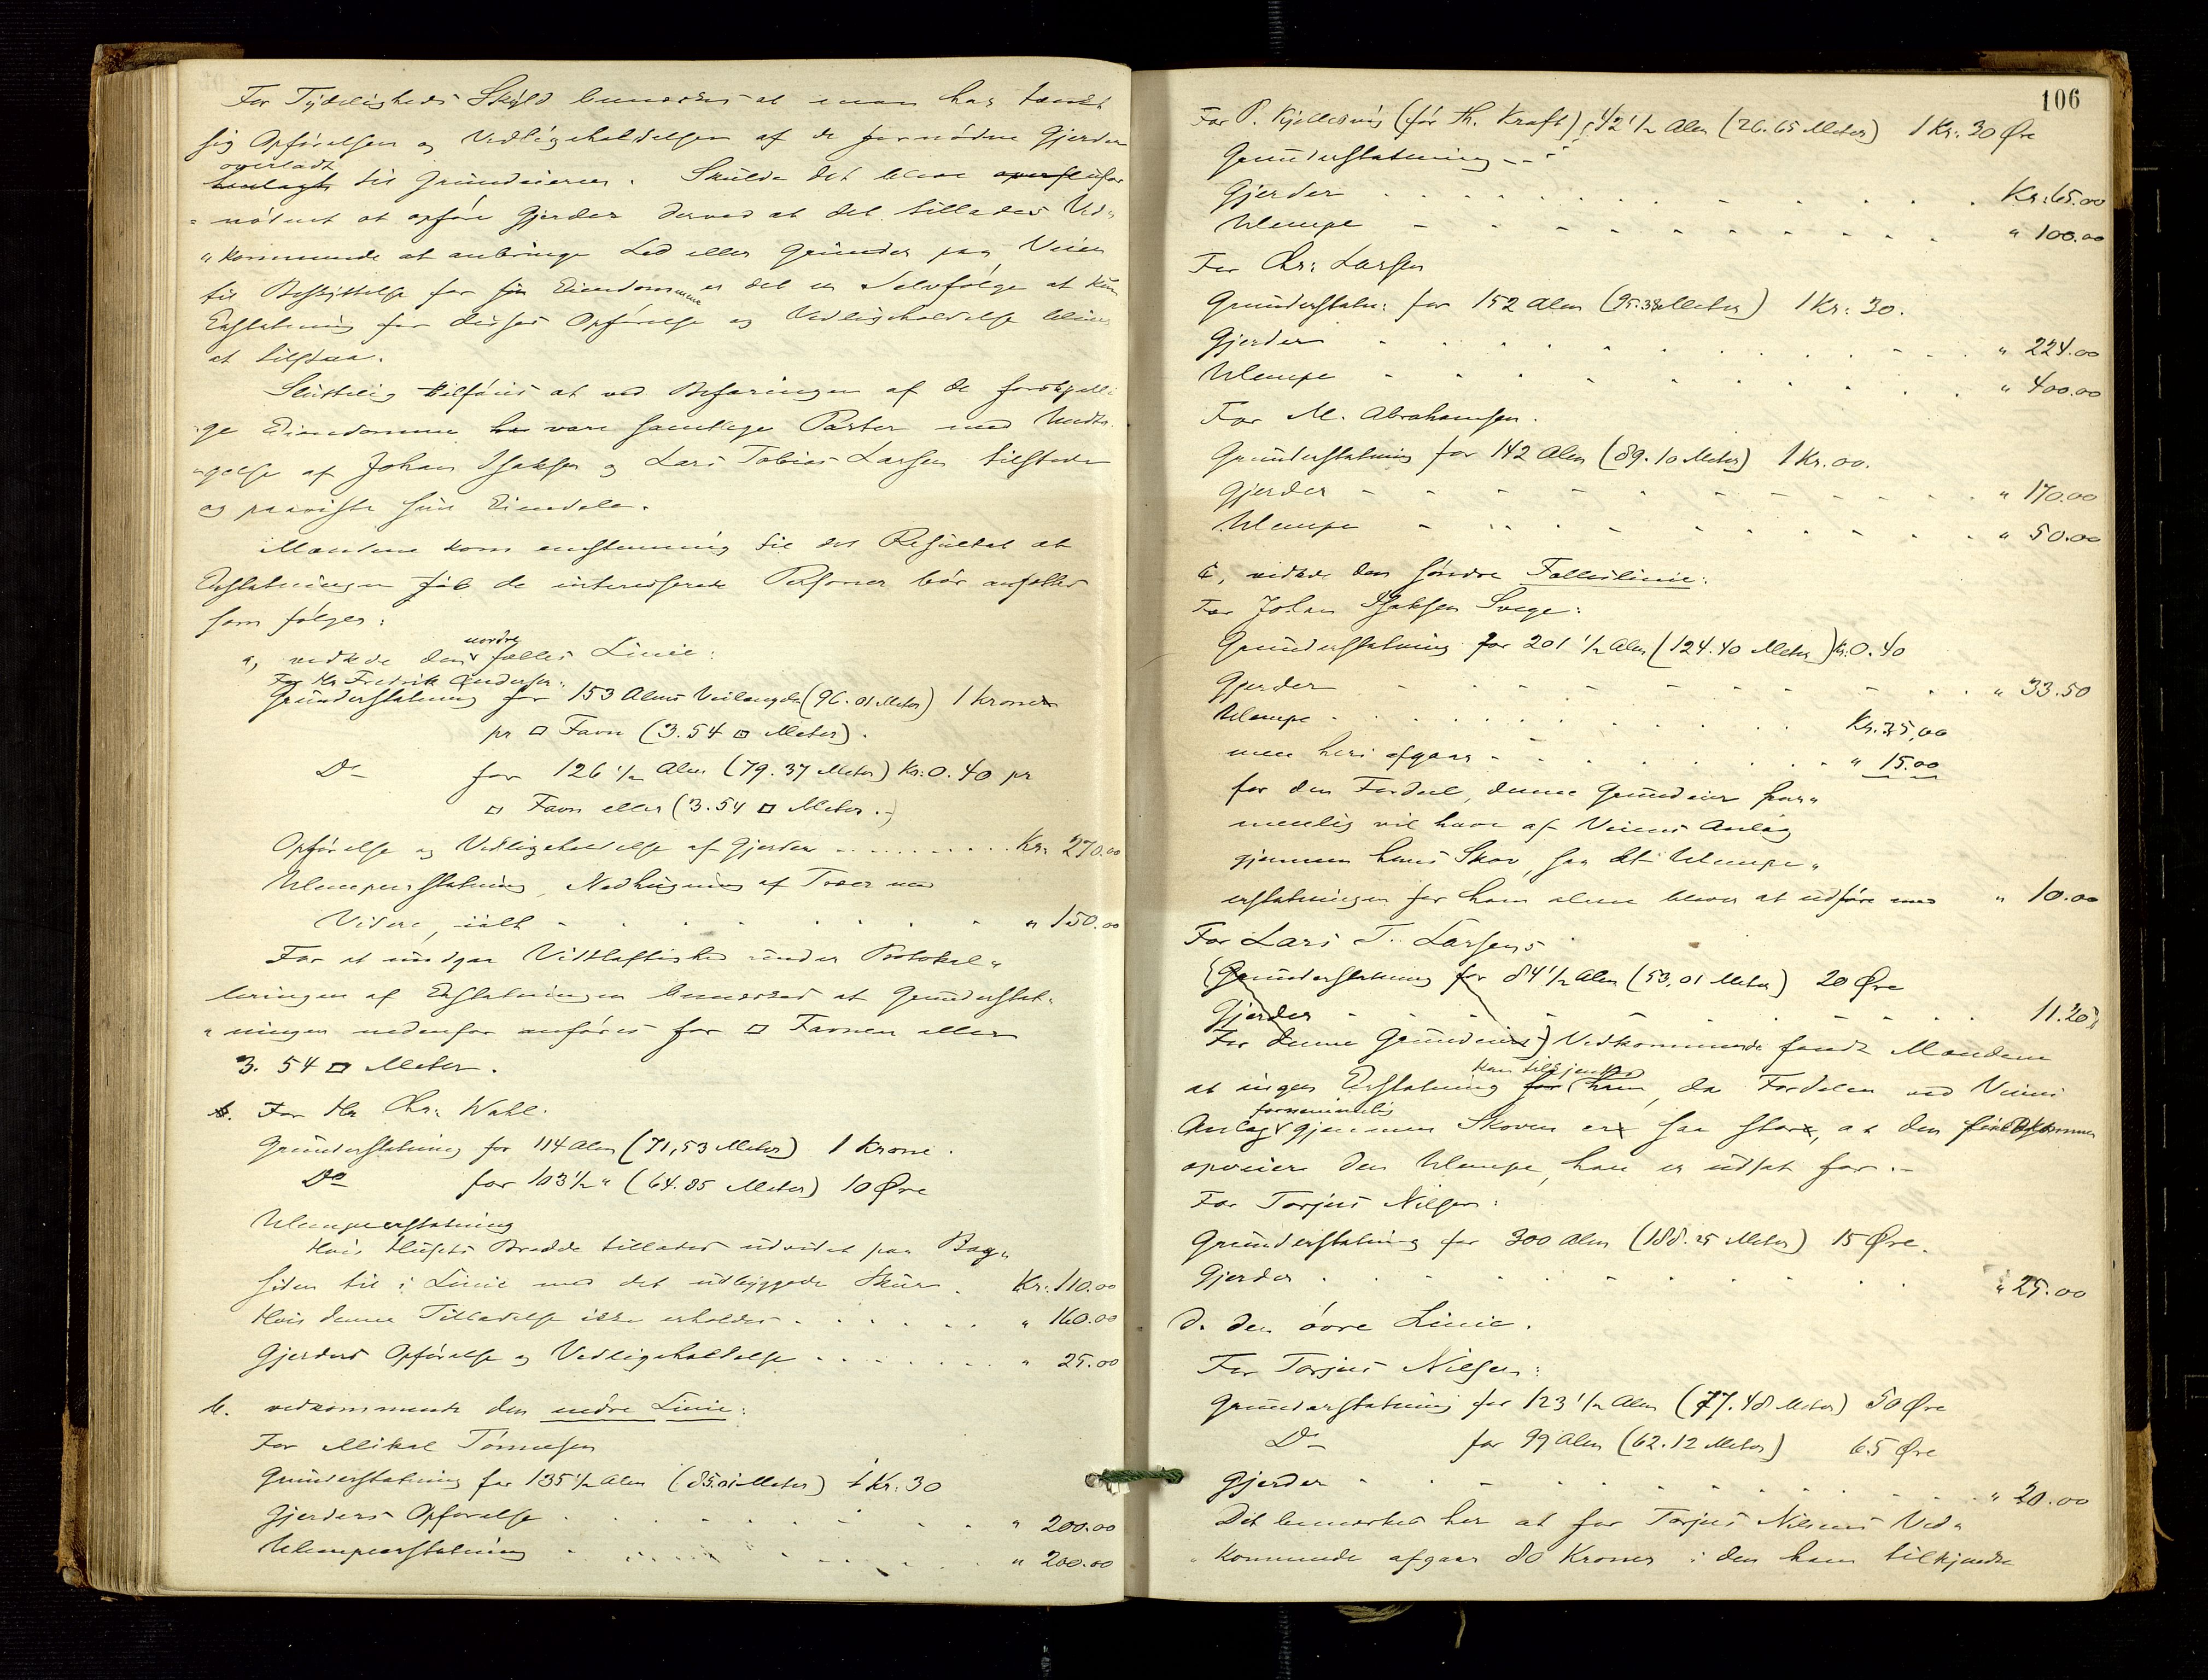 For Tydeligheds Skyld bemærkes at man har tænkt
sig Opførelsen og Vedligeholdelsen af de fornødne Gjerder
overladt
henlagt til Grundeieren. Skulde det blive ufor
=nødent at opføre Gjerder derved at det tillades Ved„
„kommende at anbringe Led eller Grinder paa Veien
til Beskyttelse for Eiendommene er det en Selvfølge at kun
Erstatning for disses Opførelse og Vedligeholdelse bliver
at tilstaa.
Sluttelig tilføies at ved Befaringen af de forskjelli
ge Eiendomme vare samtlige Parter med Undta
„gelse af Johan Isaksen og Lars Tobias Larsen tilstede
og paaviste sine Eiendele.
Mændene kom enstemmig til det Resultat at
Erstatningen til de interesserede Personer bør ansættes
som følger:
nordre
a, vedkde den fælles Linie:
For Hr Fredrik Andersen:
Grunderstatning for 153 Alens Veilængde (96.01 Meter) 1 Krone
pr □ Favn (3.54 □ Meter).
Do for 126 1/2 Alen (79.37 Meter) Kr: 0.40 pr
□ Favn eller (3.54 □ Meter.-)
Opførelse og Vedligeholdelse af Gjerder .......... Kr: 270.00
Ulempeerstatning, Nedhugning af Træer med
Videre, ialt - - - - - - „ 150.00
For at undgaa Vidtløftighed under Protokol„
leringen af Erstatningen bemærkes at Grunderstat„
„ningen nedenfor anføres for □ Favnen eller
3.54 □ Meter.
For Hr Chr: Wahl.
Grunderstatning for 114 Alen (71,53 Meter) 1 Krone.
Do for 103 1/2 „ (64.85 Meter) 10 Øre
Ulempeerstatning
Hvis Husets Bredde tillades udvidet paa Bag„
siden til i Linie med det udbyggede Skur. Kr: 110.00
Hvis denne Tilladelse ikke erholdes . . . . . . „ 160.00
Gjerders Opførelse og Vedligeholdelse . . . . . . „ 25.00
b. vedkommende den nedre Linie:
For Mikal Tønnesen
Grunderstatning for 135 1/2 Alen (85.01 Meter) 1 Kr: 30
Gjerders Opførelse . . . . . . . „ 200.00
Ulempeerstatning . . . . . . . „ 200.00
106
For P. Kjellesvig (før Th. Kraft), 42 1/2 Alen (26.65 Meter) 1 Kr: 30 Øre
Grunderstatning - - -
Gjerder . . . . . . . . . . Kr: 65.00
Ulempe - - - - - - - - - „ 100.00
For Chr: Larsen
Grunderstatn: for 152 Alen (95.38 Meter) 1 Kr: 30.
Gjerder - - - - - - - - „ 224.00
Ulempe - - - - - - - - „ 400.00
For M. Abrahamsen.
Grunderstatning for 142 Alen (89.10 Meter) 1 Kr. 00.
Gjerder - - - - - - - - - „ 170.00
Ulempe - - - - - - - - „ 50.00
c, vedkde den søndre Fælleslinie:
For Johan Isaksen Svege:
Grunderstatning for 201 1/2 Alen (124.40 Meter) Kr. 0.40
Gjerder - - - - - - - - „ 33.50
Ulempe . . . . . . . . Kr. 25,00
men heri afgaar - - . . . . . „ 15.00
for den Fordel, denne Grundeier for„
mentlig vil have af Veiens Anlæg
gjennem hans Skov, saa at Ulempe„
erstatningen for ham alene bliver at udføre med „ 10.00
For Lars T. Larsen
(Grunderstatning for 84 1/2 Alen (53,01 Meter) 20 Øre
Gjerder - - - - - - - - - 11.20)
For denne Grundeiers Vedkommende fandt Mændene
kan tilkjendes
at ingen Erstatning ham, da Fordelen ved Veiens
formentlig
Anlæg gjennem Skoven er saa stor, at den
opveier den Ulempe, han er udsat for.-
For Torjus Nilsen:
Grunderstatning for 300 Alen (188.25 Meter) 15 Øre.
Gjerder . . . . . . . . . . „ 25.00
d. den øvre Linie.
For Torjus Nilsen:
Grunderstatning for 123 1/2 Alen (77.48 Meter) 50 Øre
Do for 99 Alen (62.12 Meter) 65 Øre
Gjerder - - - - - - - - „ 20.00
Det bemærkes her at for Torjus Nilsens Ved„
„kommende afgaar 80 Kroner i den ham tilkjendte